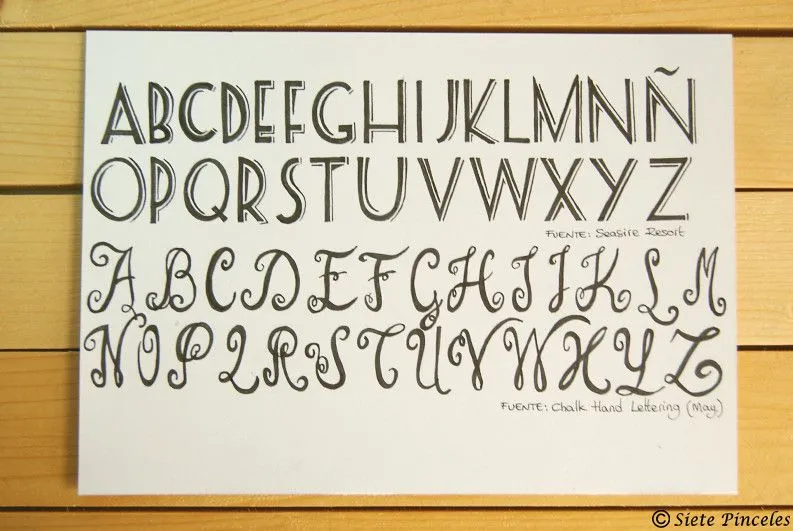 ABCDEFGHIJKLMNÑ
OPQRSTUVWXYZ
FUENTE: Seaside Resort
ABCDEFGHIJKLM
NOPQRSTUVWXYZ
FUENTE: Chalk Hand Lettering (May)
© Siete Pinceles